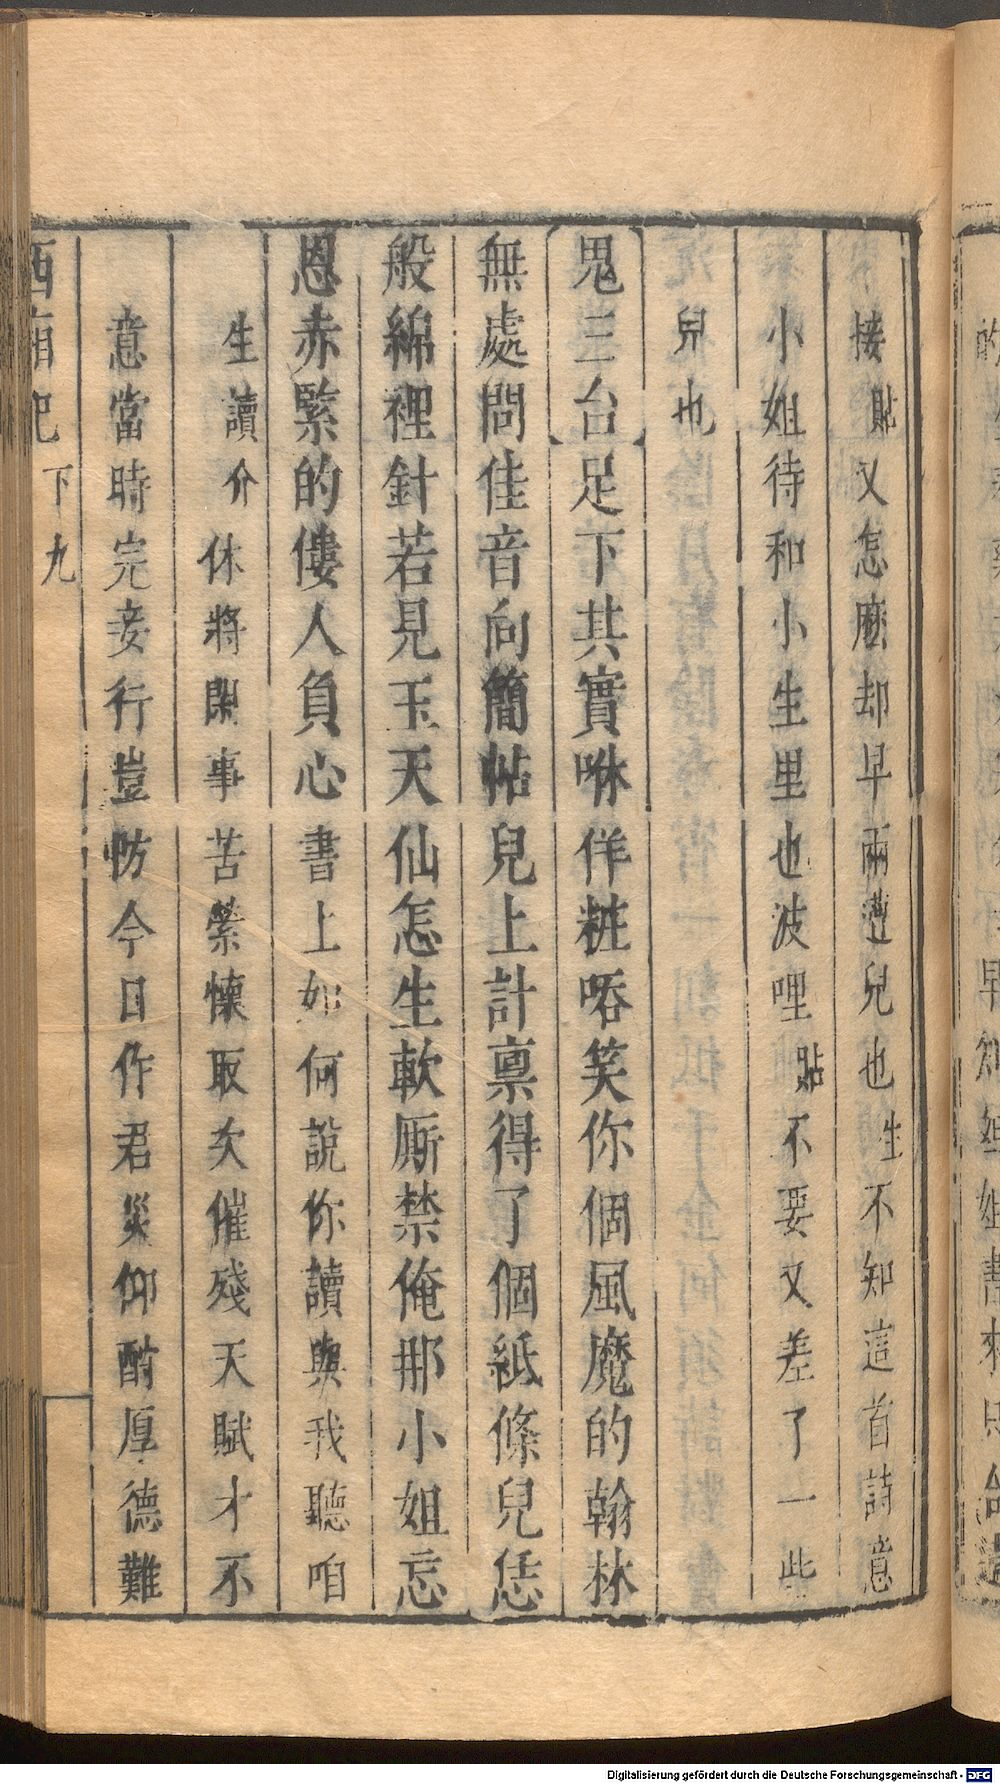 接貼又怎麽却早兩遭兒也生不知這首詩意
小姐待和小生里也波哩貼不要又差了一些
兒也
鬼三台足下其實啉佯粧㖔笑你個風魔的翰林
無處問佳音向簡帖兒上計禀得了個紙條兒恁
般綿裡針若見玉天仙怎生軟厮禁俺那小姐忘
恩赤緊的僂人負心書上如何說你讀與我聽咱
生讀介休將閑事苦縈懷取次催殘天賦才不
意當時完妾行豈防今日作君災仰酧厚德難
西廂記 下 九
Digitalisierung gefördert durch die Deutsche Forschungsgemeinschaft - DFG